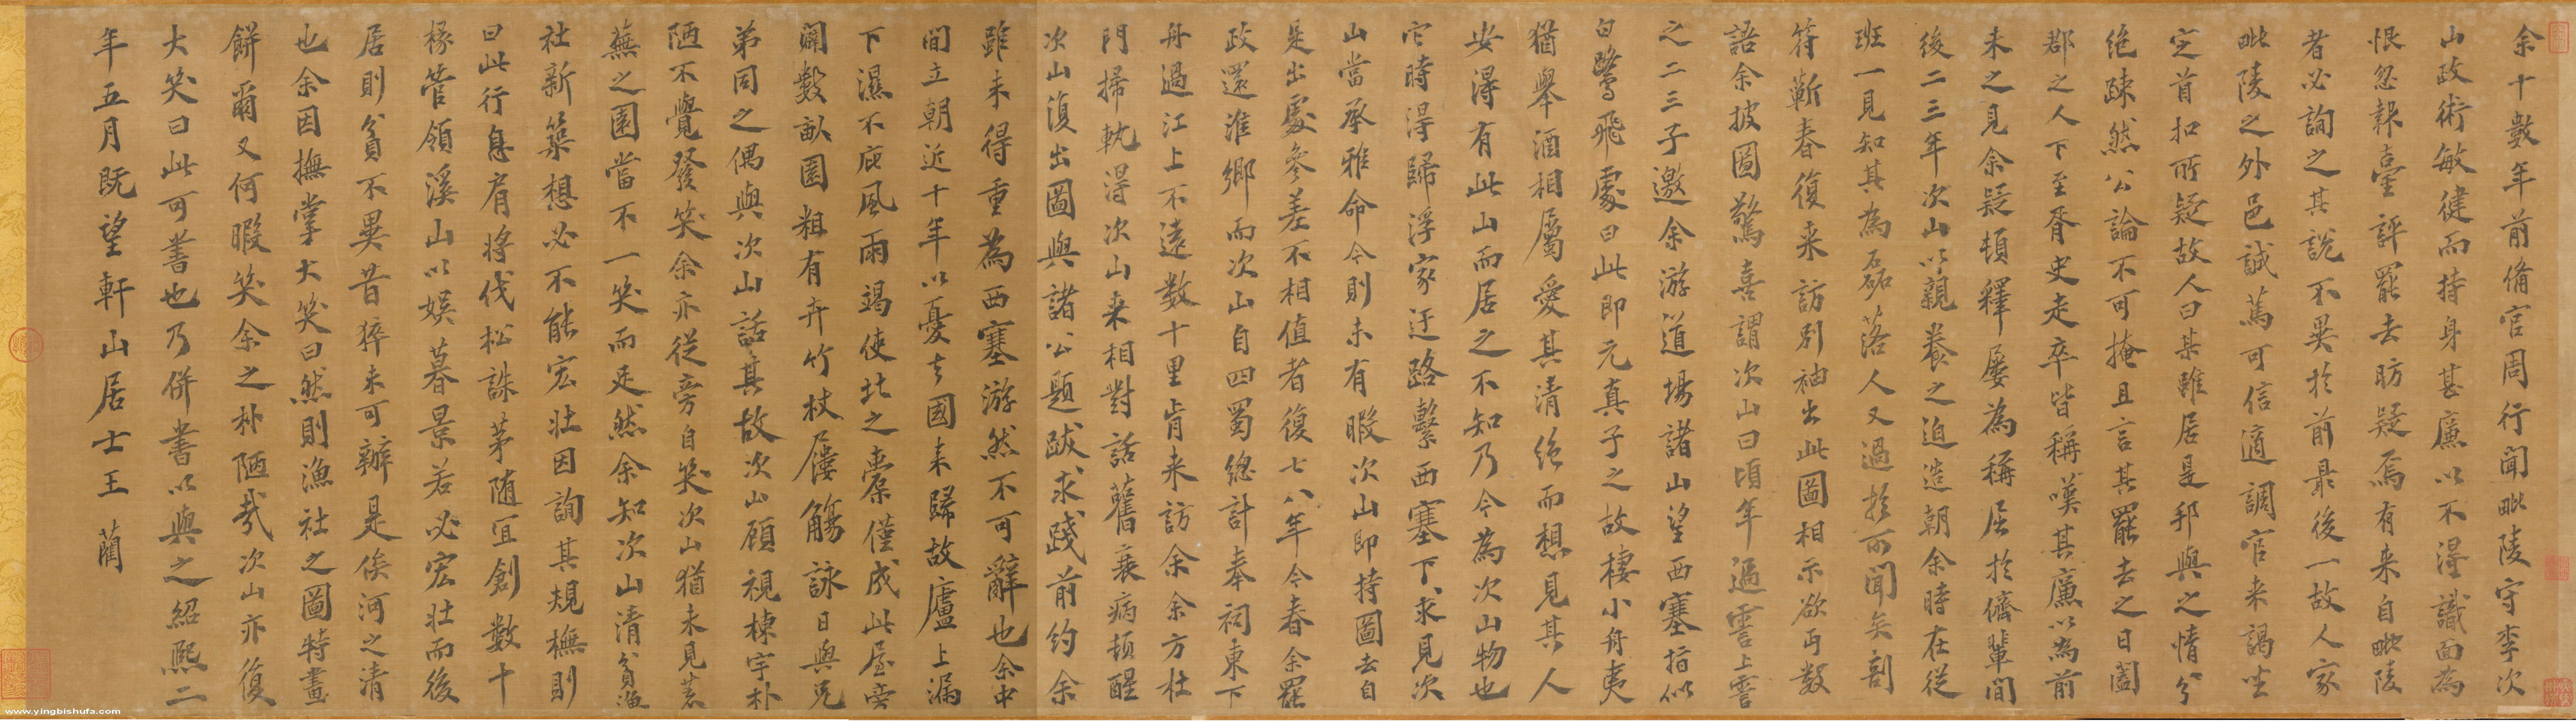 余十數年前備官周行聞毗陵守李次
山政術敏健而持身甚廉以不得識面為
恨忽報臺評罷去昉疑焉有来自毗陵
者必詢之其說不異於前最後一故人家
毗陵之外邑誠篤可信適調官来謁坐
定首扣所疑故人曰某雖居是邦與之情分
絶踈然公論不可掩且言其罷去之日闔
郡之人下至胥史走卒皆稱嘆其廉以為前
未之見余疑頓釋屡為稱屈於儕輩間
後二三年次山以親養之迫造朝余時在從
班一見知其為磊落人又過於所聞矣剖
符蘄春復来訪別袖出此圖相示欲丐數
語余披圖驚喜謂次山曰頃年過霅上霅
之二三子邀余游道場諸山望西塞指似
白鷺飛處曰此即元真子之故棲小舟夷
猶舉酒相屬愛其清絶而想見其人
安得有此山而居之不知乃今為次山物也
它時得歸浮家迂路繫西塞下求見次
山當承雅命今則未有暇次山即持圖去自
是出處參差不相值者復七八年今春余罷
政還淮鄉而次山自四蜀總計奉祠東下
舟過江上不遠数十里肯来訪余余方杜
門掃軌得次山来相對話舊衰病頓醒
次山復出圖與諸公題跋求踐前约余
雖未得重為西塞游然不可辭也余中
間立朝近十年以憂去國来歸故廬上漏
下濕不庇風雨竭使北之橐僅成此屋旁
闢數畝園粗有卉竹杖屨觴詠日與兄
弟同之偶與次山話其故次山顧視棟宇朴
陋不覺發笑余亦從旁自笑次山猶未見荒
蕪之園當不一笑而足然余知次山清貧漁
社新築想必不能宏壯因詢其規橅則
曰此行息肩将伐松誅茅随宜創數十
椽管領溪山以娱暮景若必宏壯而後
居則貧不異昔猝未可辦是俟河之清
也余因撫掌大笑曰然則漁社之圖特畫
餅爾又何暇笑余之朴陋哉次山亦復
大笑曰此可書也乃併書以與之紹熙二
年五月既望軒山居士王藺
www.yingbishufa.com